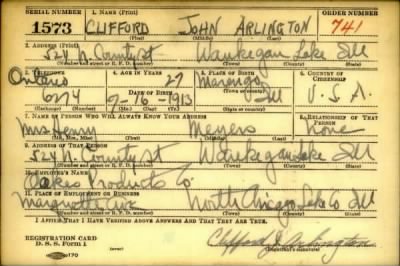 SERIAL NUMBER 1. NAME (Print) ORDER NUMBER
1573 CLIFFORD JOHN ARLINGTON 741
(First) (Middle) (Last)
2. ADDRESS (Print)
524 N County St Waukegan Lake Ill
(Number and street or R. F. D. number) (Town) (County) (State)
3. TELEPHONE 4. AGE IN YEARS 5. PLACE OF BIRTH 6. COUNTRY OF CITIZENSHIP
Ontario 27 Marengo
DATE OF BIRTH
6774 9-16-1913 Ill U. S. A.
(Exchange) (Number) (Mo.) (Day) (Yr.) (State or country)
7. NAME OF PERSON WHO WILL ALWAYS KNOW YOUR ADDRESS 8. RELATIONSHIP OF THAT PERSON
Mrs Henry Meyers None
(Mr., Mrs., Miss) (First) (Middle) (Last)
9. ADDRESS OF THAT PERSON
524 N. County St Waukegan Lake Ill
(Number and street or R. F. D. number) (Town) (County) (State)
10. EMPLOYER'S NAME
Oakes Products Co.
11. PLACE OF EMPLOYMENT OR BUSINESS
Marquette Ave North Chicago Lake Co Ill
(Number and street or R. F. D. number) (Town) (County) (State)
I AFFIRM THAT I HAVE VERIFIED ABOVE ANSWERS AND THAT THEY ARE TRUE.
REGISTRATION CARD
D. S. S. Form 1 Clifford J Arlington